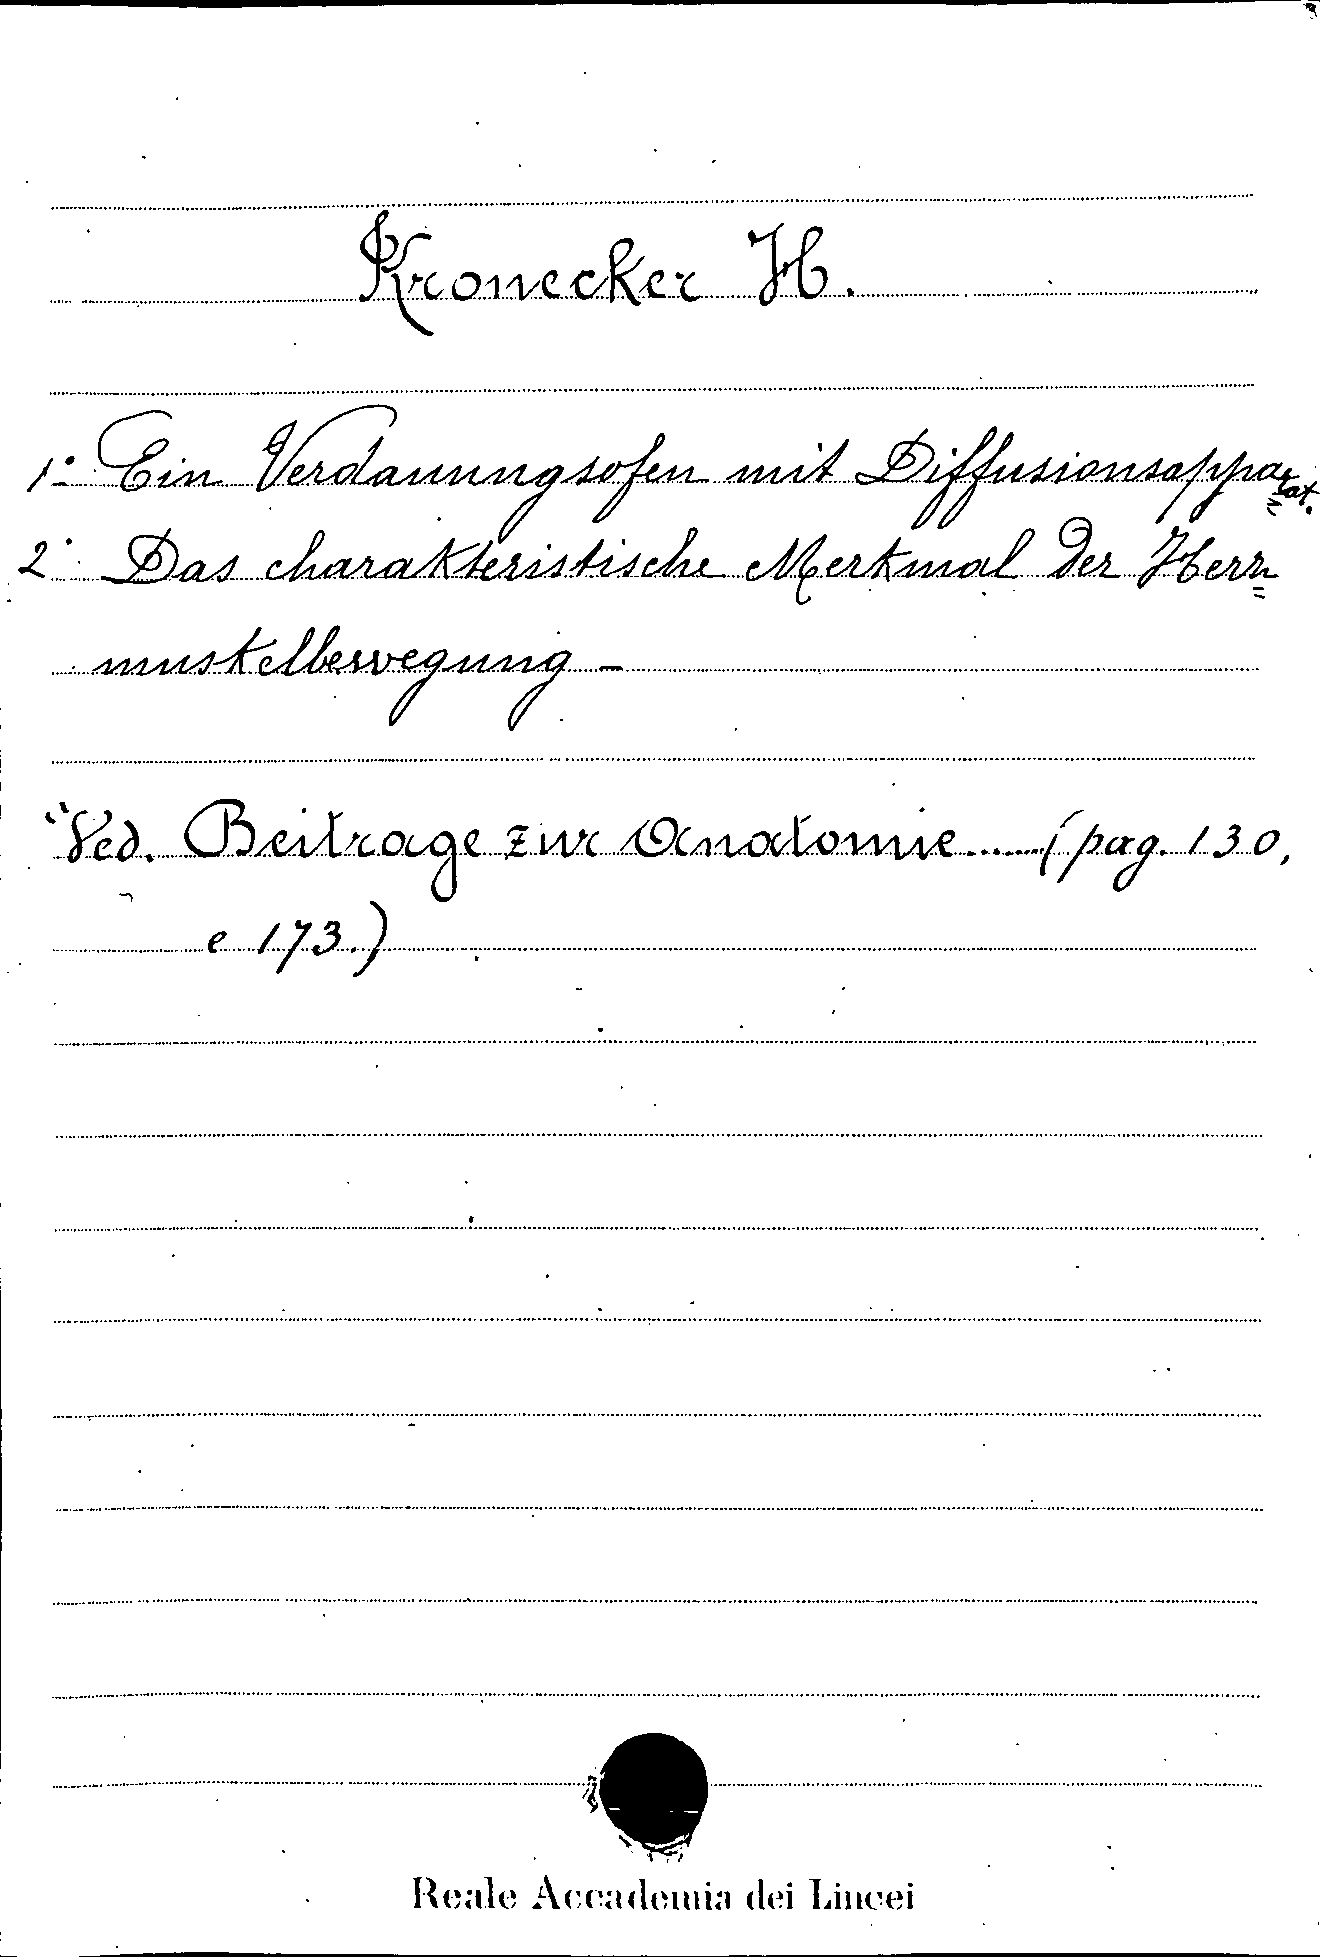 Kronecker H.
1° Ein Verdauungsofen mit Diffusionsapparat.
2° Das charakteristische Merkmal der Herz=
muskelbewegung –
"Ved. Beitrage zur Anatomie......(pag. 130,
e 173.)
Reale Accademia dei Lincei